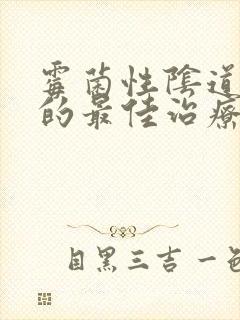 霉菌性陰道
的最佳治療
目黑三吉一